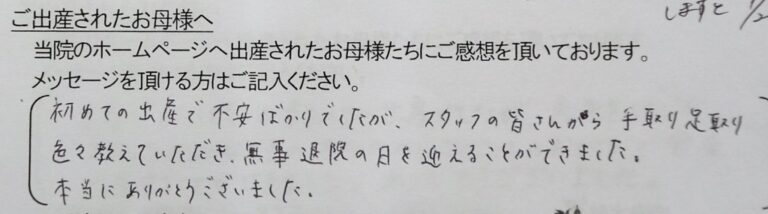 ご出産されたお母様へ
当院のホームページへ出産されたお母様たちにご感想を頂いております。
メッセージを頂ける方はご記入ください。
初めての出産で不安ばかりでしたが、スタッフの皆さんから手取り足取り
色々教えていただき、無事退院の日を迎えることができました。
本当にありがとうございました。